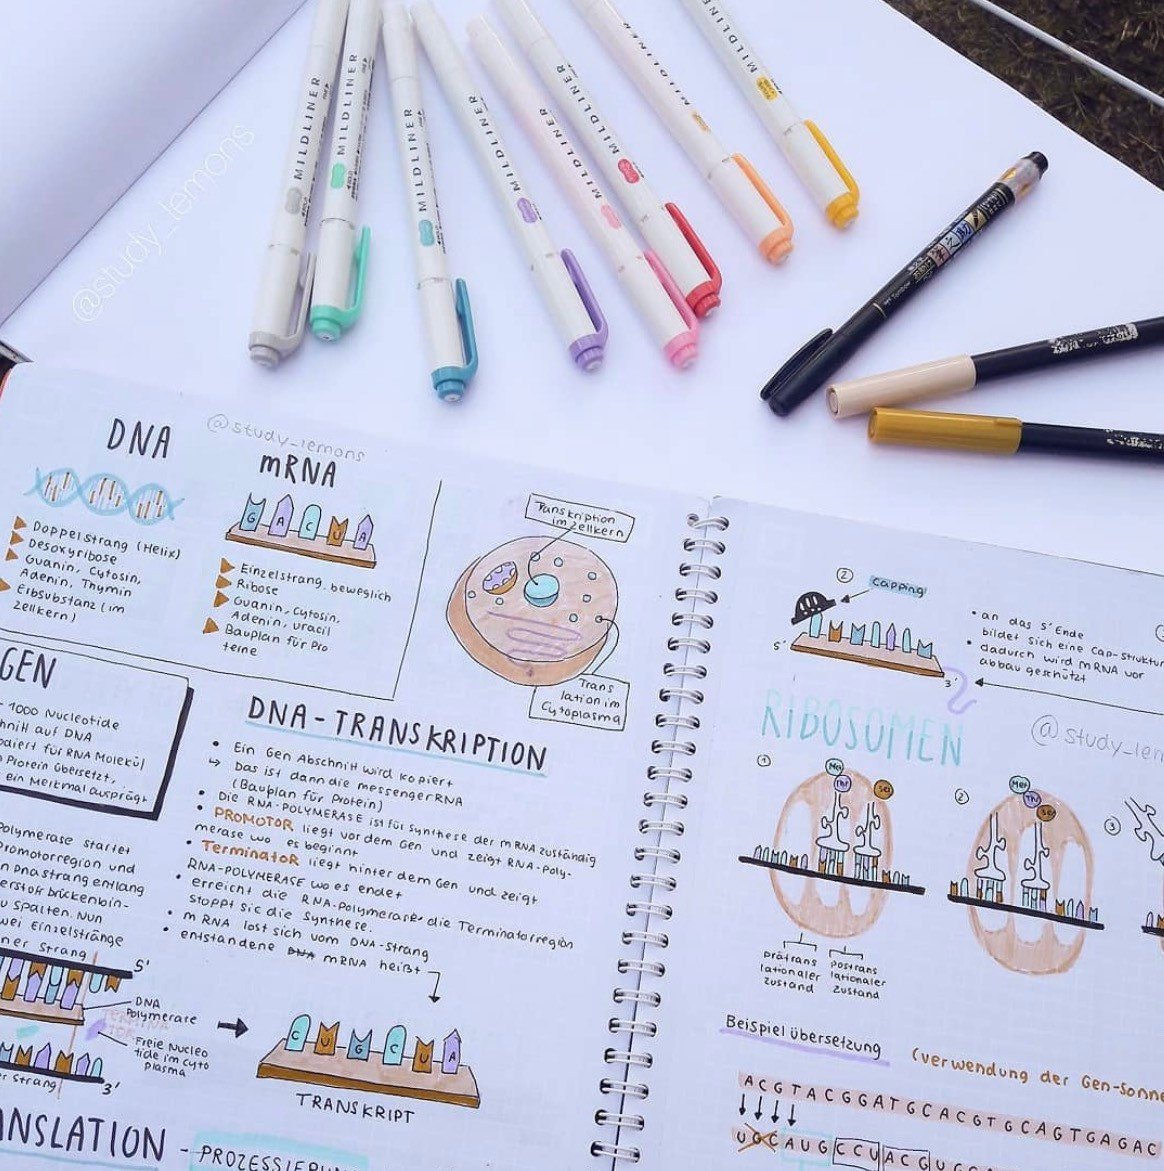 MILDLINER
MILDLINER
MILDLINER
MILDLINER
MILDLINER
MILDLINER
MILDLINER
MILDLINER
@study_lemons
@study_lemons
DNA
Doppelstrang (Helix)
Desoxyribose
Guanin, Cytosin,
Adenin, Thymin
Erbsubstanz (im
Zellkern)
mRNA
G A C U A
Einzelstrang, beweglich
Ribose
Guanin, Cytosin,
Adenin, Uracil
Bauplan für Pro
teine
Transkription
im Zellkern
Trans
lation im
Cytoplasma
GEN
1000 Nucleotide
hnitt auf DNA
paiert für RNA Molekül
Protein übersetzt,
ein Merkmal ausprägt
DNA-TRANSKRIPTION
• Ein Gen Abschnitt wird kopiert
↳ Das ist dann die messengerRNA
(Bauplan für Protein)
• Die RNA-POLYMERASE ist für Synthese der mRNA zuständig
• PROMOTOR liegt vor dem Gen und zeigt RNA-Poly-
merase wo es beginnt
• Terminator liegt hinter dem Gen und zeigt
RNA-POLYMERASE wo es endet
erreicht die RNA-Polymerase die Terminatorregion
stoppt sie die Synthese.
• mRNA löst sich vom DNA-strang
• entstandene DNA mRNA heißt
Polymerase startet
romotorregion und
DNA strang entlang
erstoff brückenbin-
u spalten. Nun
wei Einzelstränge
ner Strang)
5'
DNA
Polymerase
Freie Nucleo
tide im cyto
plasma
er Strang)
3'
C U G C U A
TRANSKRIPT
ANSLATION - PROZESSIERU
2
capping
5'
3'
• an das 5'Ende
bildet sich eine Cap-Struktur
• dadurch wird mRNA vor
abbau geschützt
RIBOSOMEN
@study_lem
1
Met
Thr
Ser
2
Met
Thr
Ser
3
prätrans
lationaler
Zustand
Postrans
lationaler
Zustand
Beispiel übersetzung
(verwendung der Gen-Sonne
ACGTACGGATGCACGTGCAGTGAGAC
UGCAUGCCUACGUG